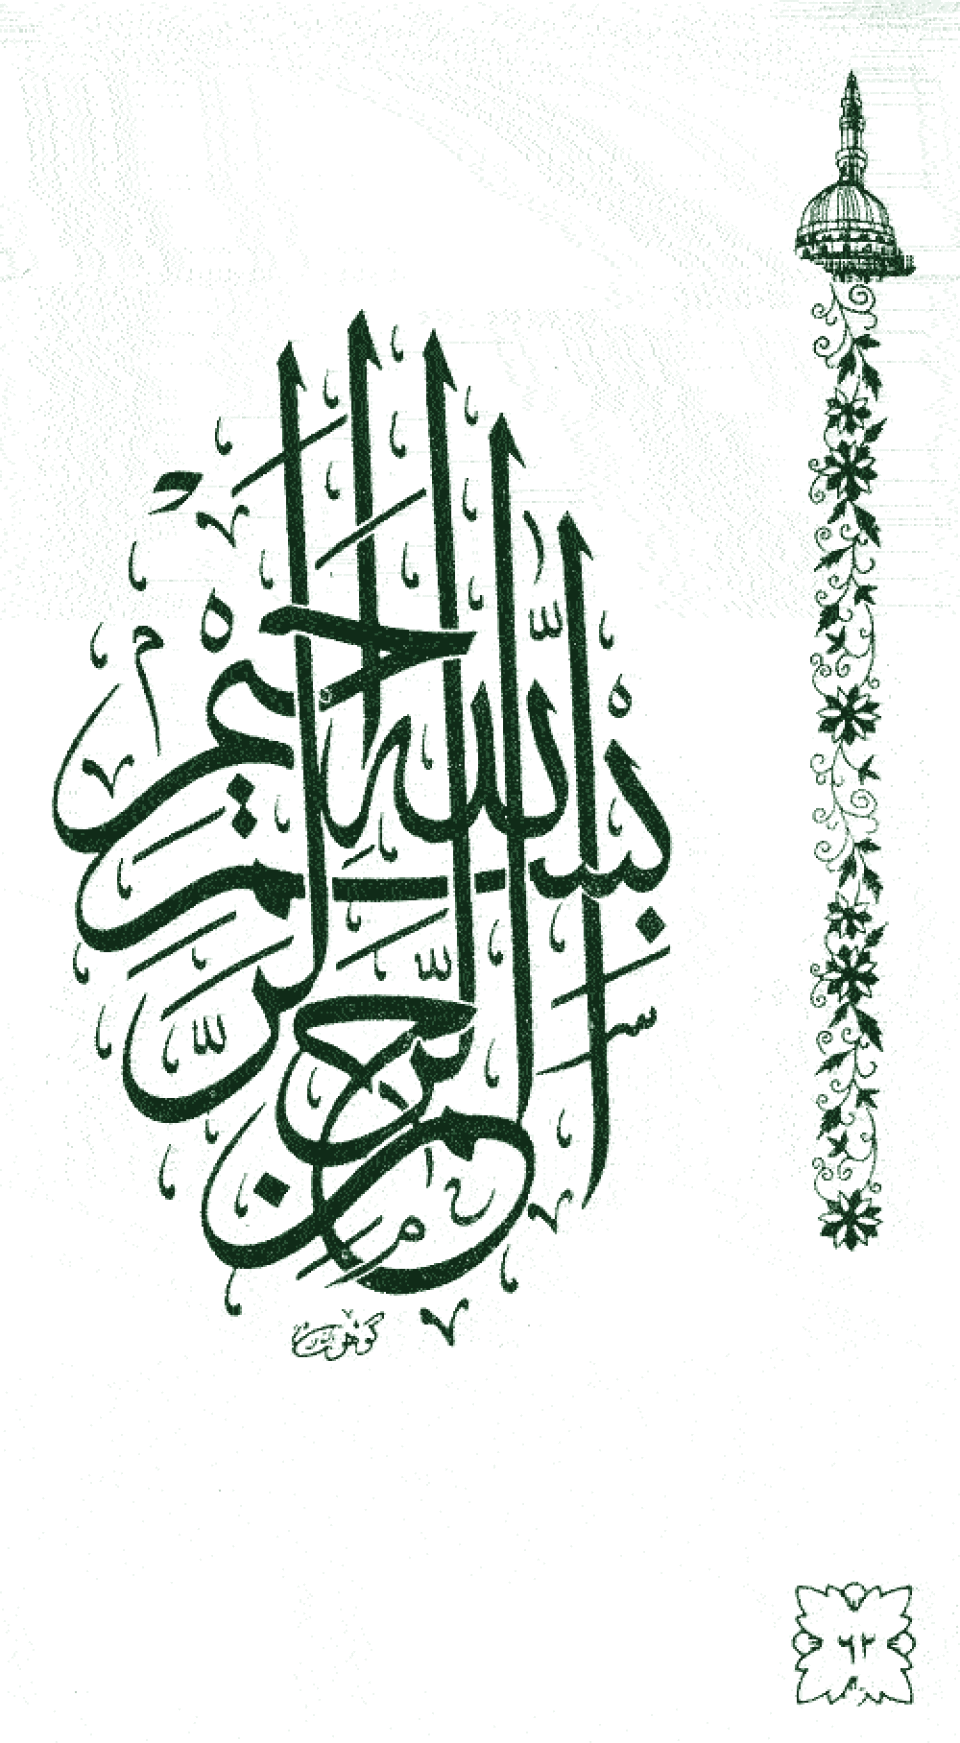 بِسْمِ اللّٰهِ الرَّحْمٰنِ الرَّحِيْمِ
۶۲